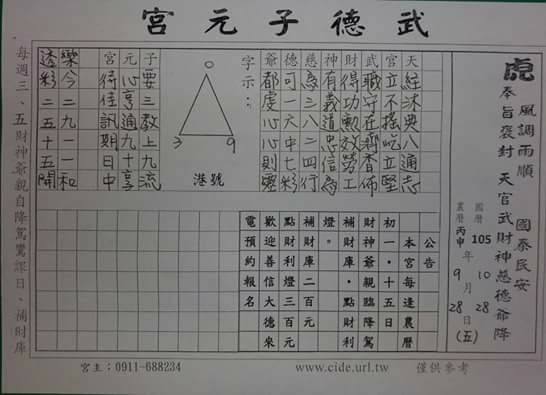 武德子元宮
虎
風調雨順 國泰民安
奉旨褒封 天官武財神慈德爺降
國曆 105 年 10 月 28 日(五)
農曆 丙申 年 9 月 28 日
天官武財神慈德爺字示：
天
官立不搖屹立堅
武職守在
財得功勳效勞工
神有義道忠信為
慈為三八二四行
德可一六中七彩
爺都虔心則靈
3 9
港號
子要三教上九流
元心享通九十享
宮待佳訊期日中
樂今二九一一和
透彩二五十五開
公告
本宮每逢農曆
初一·十五
財神爺·親臨降駕
補財庫·點財利
燈。
補財庫二百元
點財利燈三百元
歡迎善信大德來
電預約報名
每週三、五財神爺親自降駕鸞課日、補財庫
宮主：0911-688234
www.cide.url.tw
僅供參考